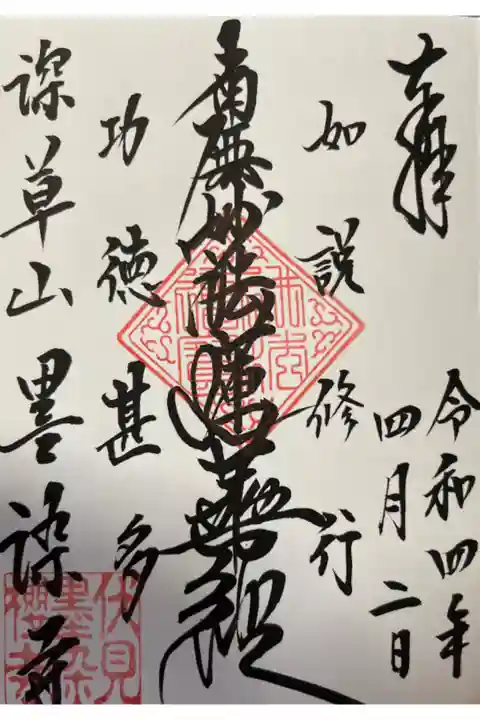 奉拝
令和四年
四月二日
如説修行
南無妙法蓮華経
功徳甚多
深草山墨染寺
伏見
墨染
桜寺